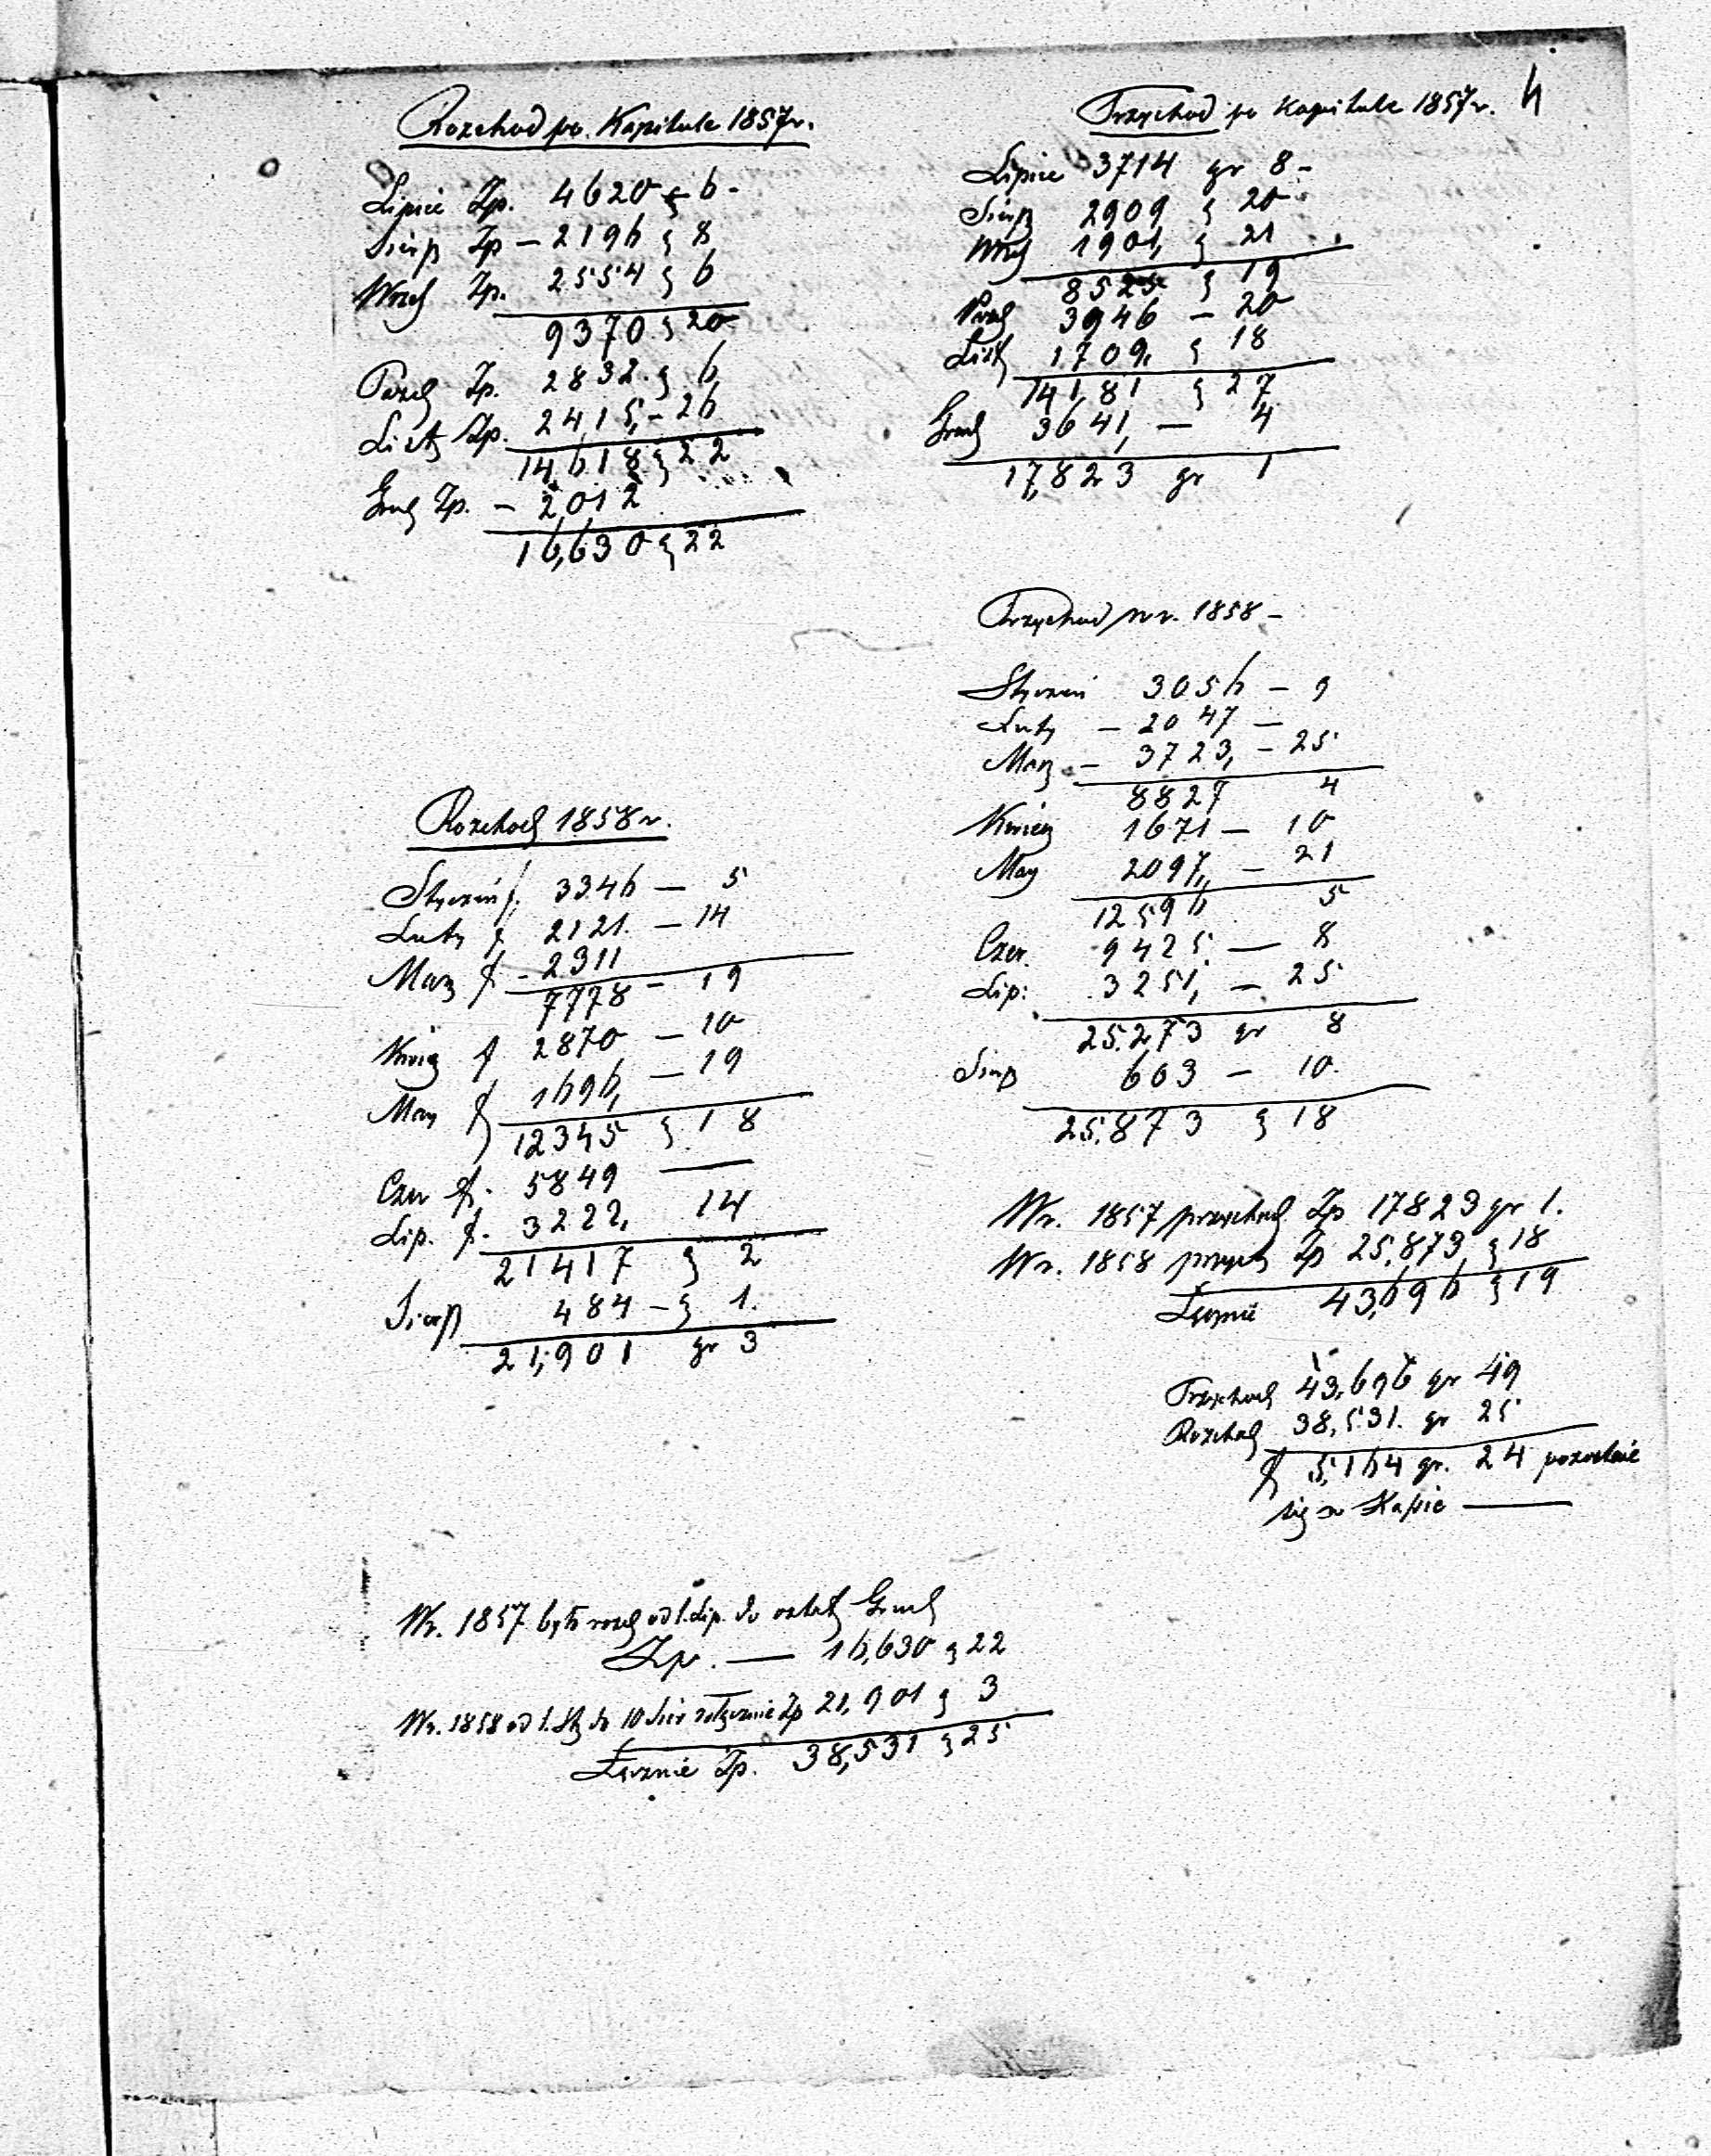 4
Rozchod po Kapitule 1857 r.
Lipiec Zp. 4620 g 6 -
Sierp Zp - 2196 g 8
Wrześ Zp. 2554 g 6
9370 g 20
Paźd Zp. 2832 g 6
List Zp. 2415, - 26
14,618 g 22
Grud Zp. - 2012
16,630 g 22
Przychod po Kapitule 1857 r.
Lipiec 3714 gr 8 -
Sierp 2909 g 20
Wrz 1901, g 21
8525 g 19
Paźd 3946 - 20
List 1709, g 18
14181 g 27
Grud 3641, - 4
17,823 gr 1
Przychod w r. 1858 -
Styczeń 3056 - 9
Luty - 2047 -
Marz - 3723, - 25
8827 4
Kwiec 1671 - 10
May 2097, - 21
12596 5
Czer. 9425. - 8
Lip: 3251, - 25
25.273 gr 8
Sierp 603 - 10.
25.873 g 18
Rozchod 1858 r.
Styczeń f. 3346 - 5
Luty f. 2121. - 14
Marz f - 2311
7778 - 19
Kwie f 2870 - 10
May f 1696, - 19
12345 g 18
Czer f. 5849 —
Lip. f. 3222, 14
21417 g 2
Sierp 484 - g 1.
21,901 gr 3
W r. 1857 przychod Zp 17823 gr 1.
W r. 1858 przych Zp 25.873, g 18
Łącznie 43,696 g 19
Przychod 43,696 gr 49
Rozchod 38,531. gr 25
f 5,164 gr. 24 pozostaie
się w Kassie —
W r. 1857 było rozch od 1. Lip. do ostat Grud
Zp. — 16,630 g 22
W r. 1858 od 1. Sty do 10 Sier włącznie Zp 21,901 g 3
Łącznie Zp. 38,531 g 25